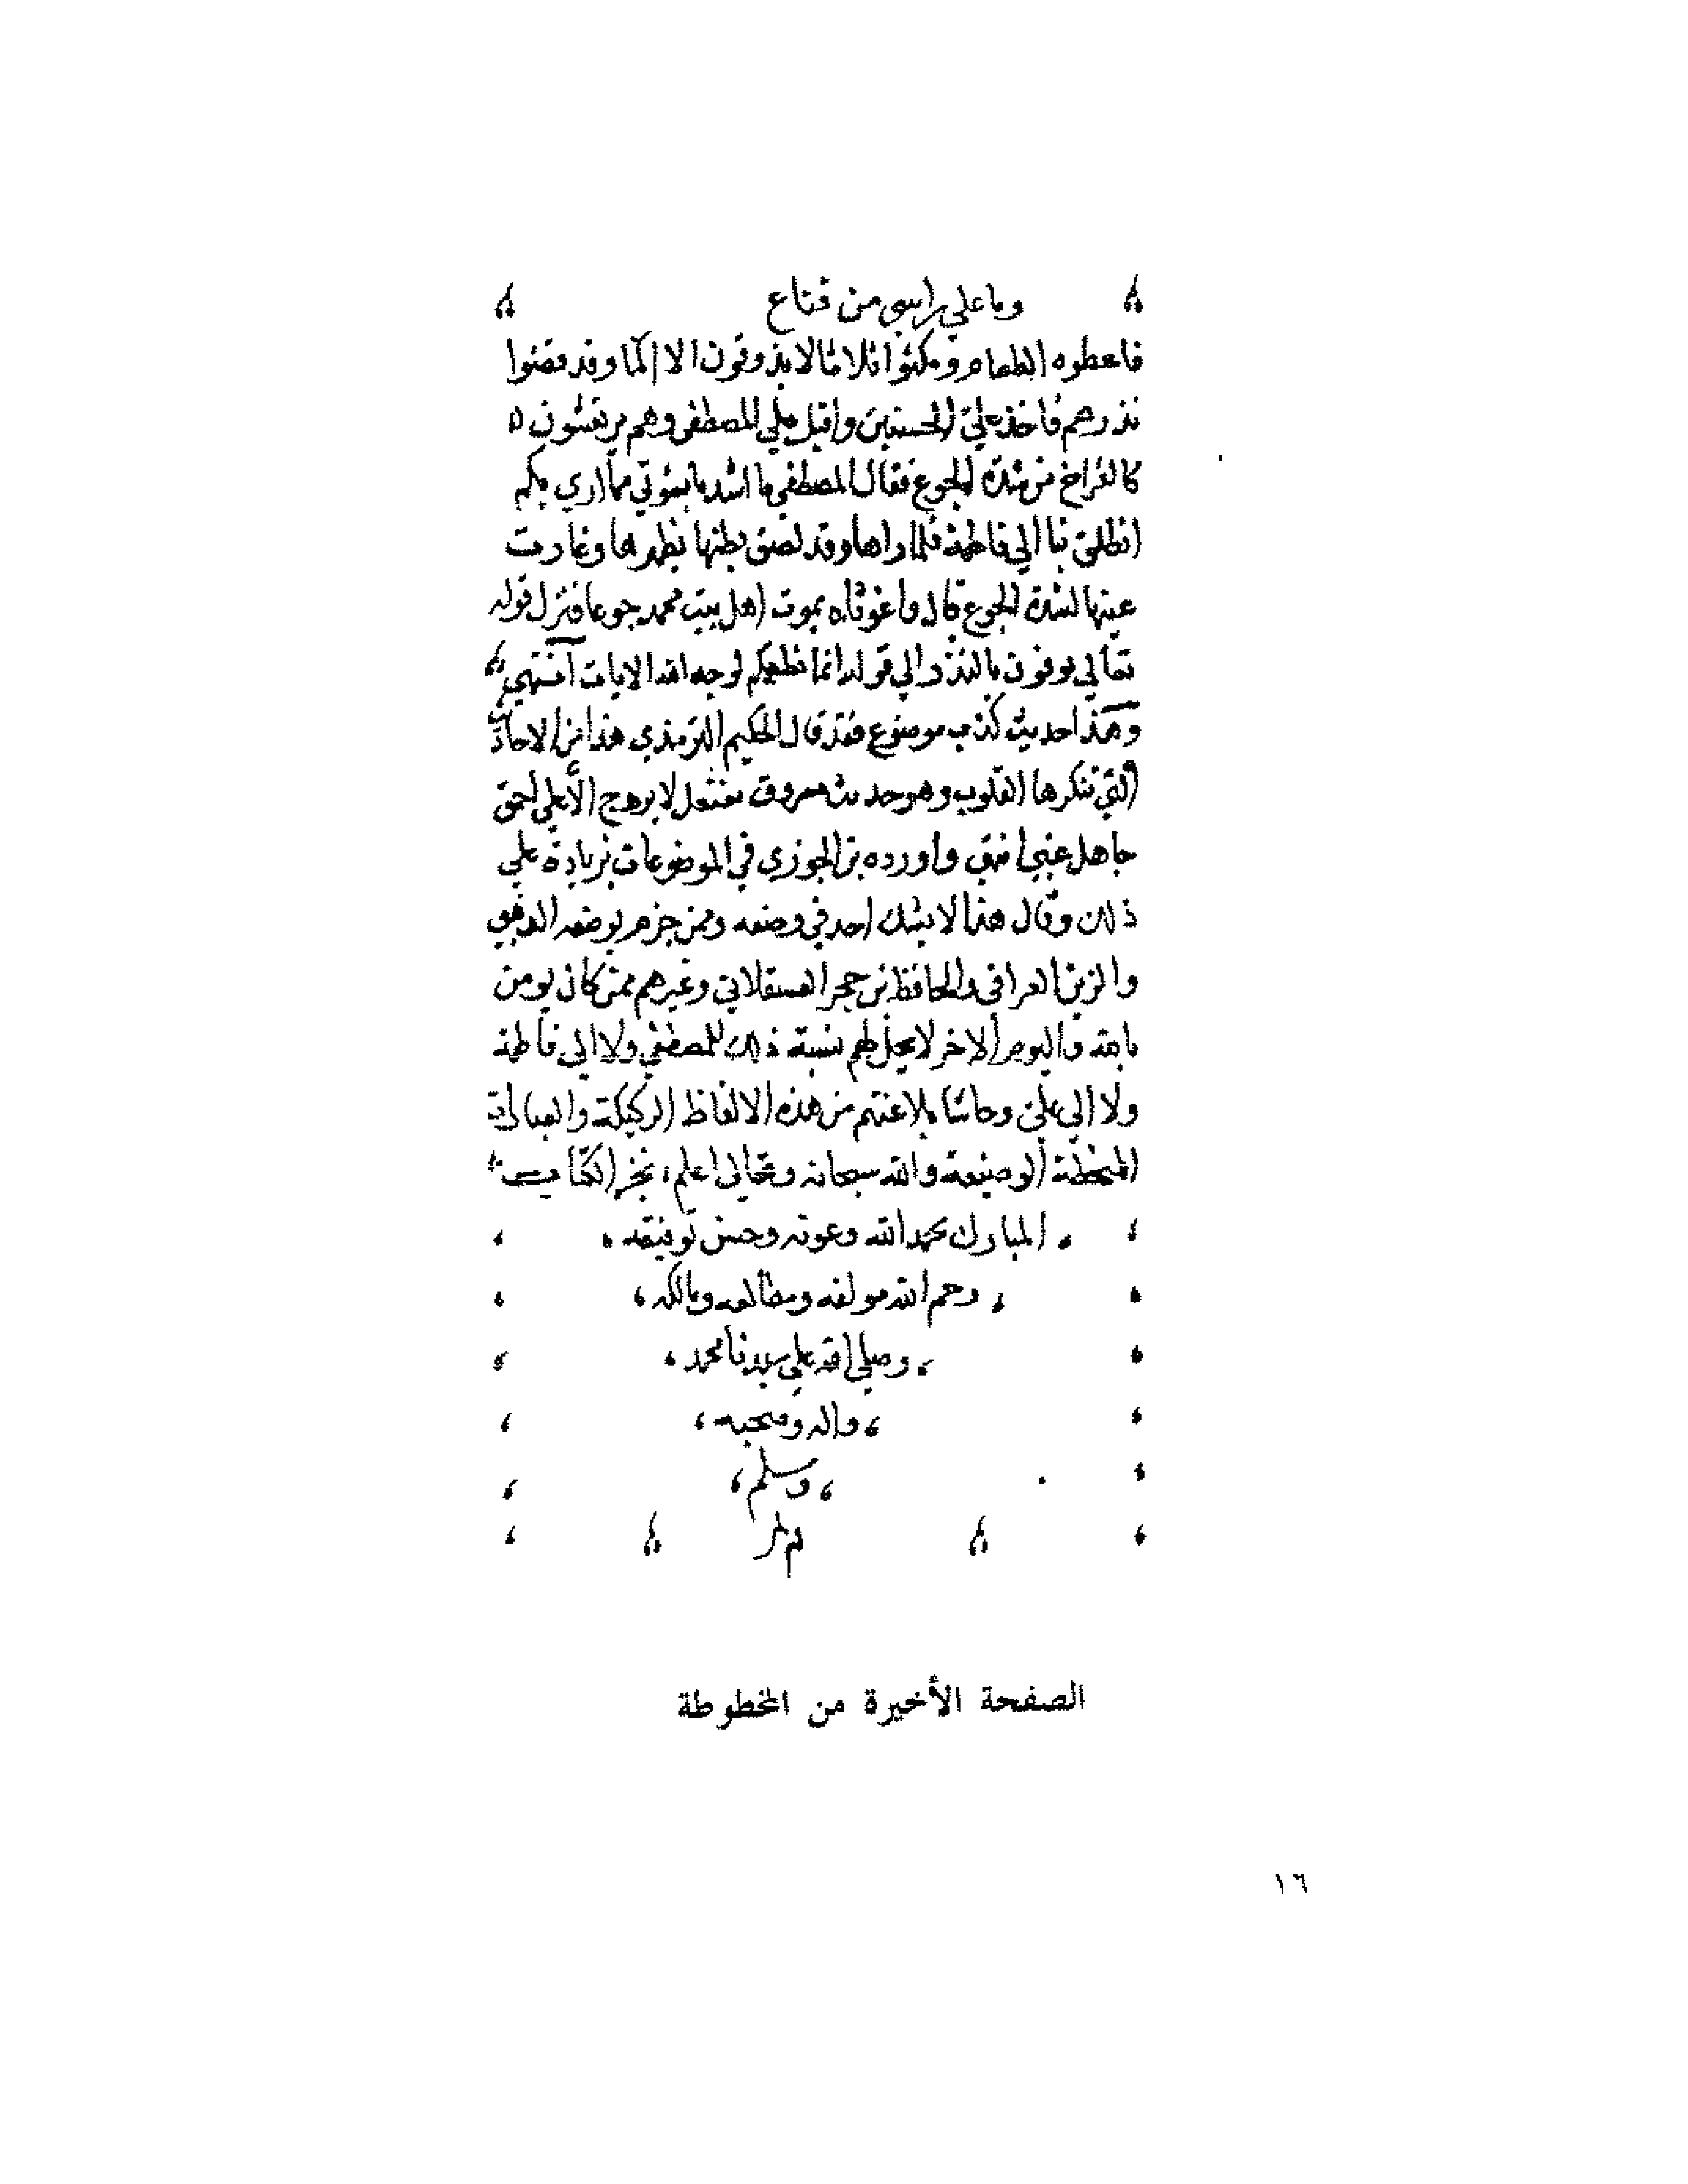 وما علي راسي من قناع
فاعطوه الطعام ومكثوا ثلاثا لا يذوقون الا الما وقد قضوا
نذرهم فاخذ علي الحسنين واقبل علي المصطفى وهم يرتعشون
كالفراخ من شدة الجوع فقال المصطفي ما اشد ما يسوني مما اري بكم
انطلق بنا الي فاطمة فلما راها وقد لصق بطنها بظهرها وغارت
عينها لشدة الجوع قال واغوثاه يموت اهل بيت محمد جوعا فنزل قوله
تعالي يوفون بالنذر الي قوله انما نطعمكم لوجه الله الايات انتهي
وهذا حديث كذب موضوع فقد قال الحكيم الترمذي هذا من الاحاديث
التي تنكرها القلوب وهو حديث مزوق مفتعل لا يروج الا علي احمق
جاهل غبي انتهي واورده بن الجوزي في الموضوعات بزيادة علي
ذلك وقال هذا لا يشك احد في وضعه وممن جزم بوضعه الذهبي
والزين العراقي والحافظ بن حجر العسقلاني وغيرهم ممن كان يومن
بالله واليوم الاخر لا يحل لهم نسبة ذلك للمصطفي ولا الي فاطمة
ولا الي علي وحاشا بلاغتهم من هذه الالفاظ الركيكة والعبارات
المنحطة الوضيعة والله سبحانه وتعالي اعلم، نجز الكتاب
المبارك بحمد الله وعونه وحسن توفيقه
رحم الله مولفه ومطالعه ومالكه،
، وصلي الله علي سيدنا محمد،
، واله وصحبه،
، وسلم،
الصفحة الأخيرة من المخطوطة
١٦